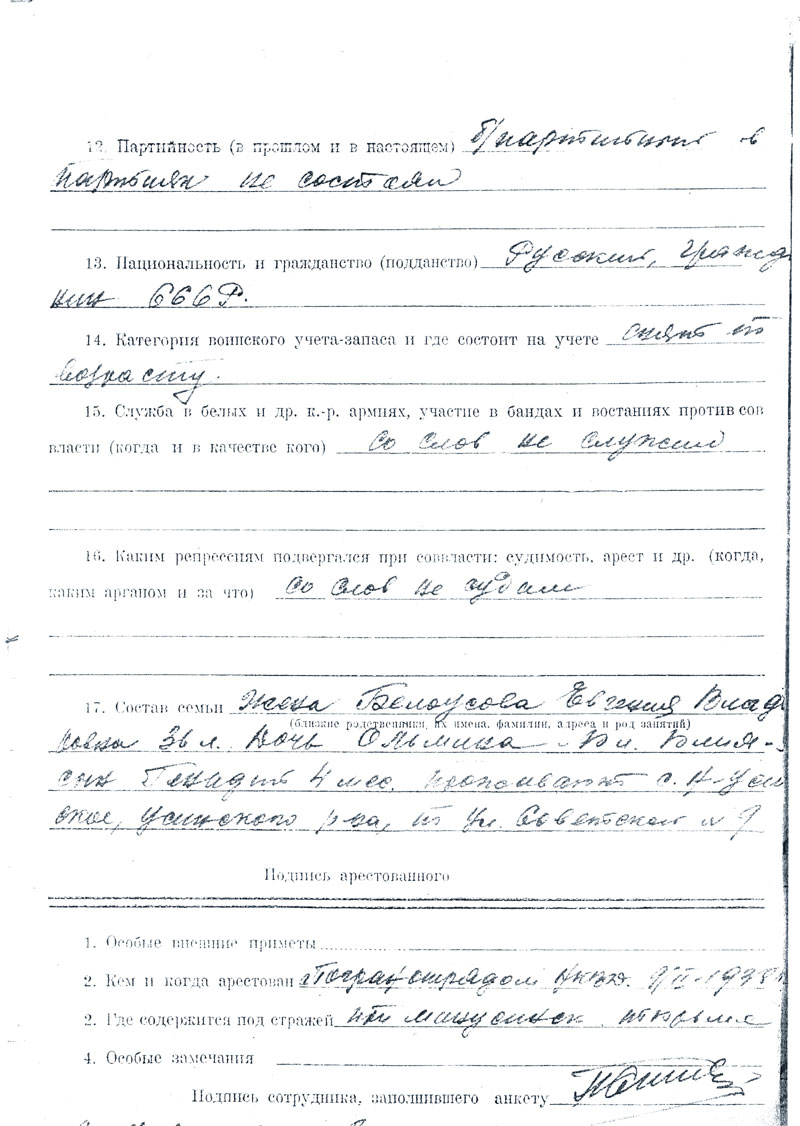 12. Партийность (в прошлом и в настоящем) б/партийный в
партиях не состоял
13. Национальность и гражданство (подданство) Русский, гражда
нин СССР.
14. Категория воинского учета-запаса и где состоит на учете снят по
возрасту.
15. Служба в белых и др. к.-р. армиях, участие в бандах и востаниях против сов
власти (когда и в качестве кого) со слов не служил
16. Каким репрессиям подвергался при соввласти: судимость, арест и др. (когда,
каким арганом и за что) со слов не судим
17. Состав семьи Жена Белоусова Евгения Влад
(близкие родственники, их имена, фамилии, адреса и род занятий)
36 л. Дочь
сын Генадий 4 мес. проживают с. В-Усин
ское, Усинского р-на, по ул. Советской № 9
Подпись арестованного
1. Особые внешние приметы
2. Кем и когда арестован Погранотрядом НКВД. 1938
2. Где содержится под стражей при тюрьме
4. Особые замечания
Подпись сотрудника, заполнившего анкету